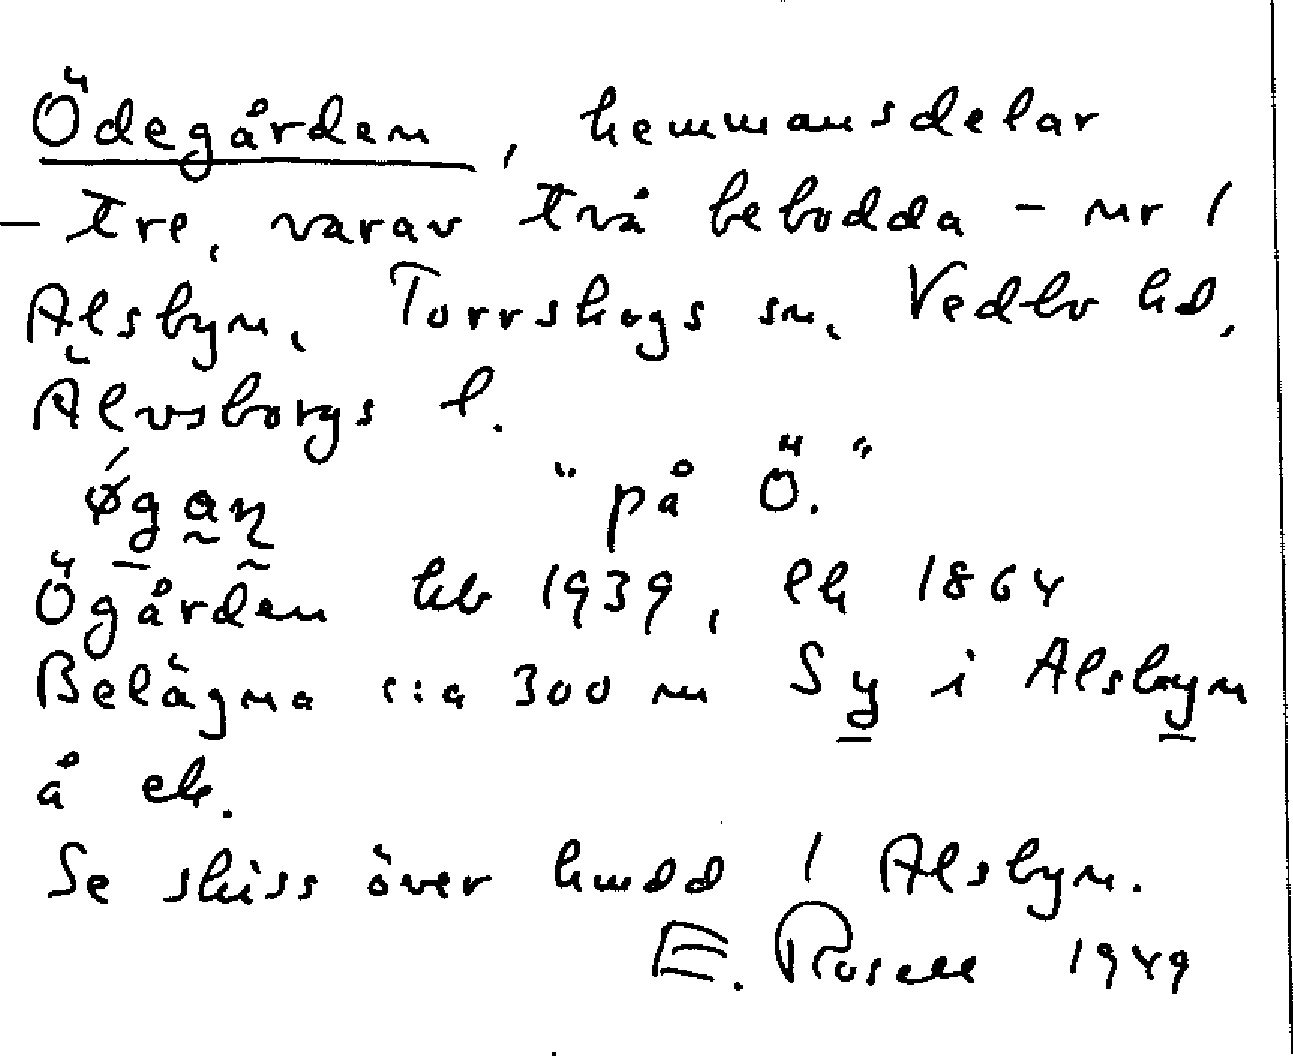 Ödegården, hemmansdelar
– tre, varav två bebodda – nr 1
Alsbyn, Torrskogs sn, Vedbo hd,
Älvsborgs l.
ǿgan̥ "på Ö."
Ögården hb 1939, ek 1864
Belägna c:a 300 m Sy i Alsbyn
å ek.
Se skiss över hmdd 1 Alsbyn.
E. Rosell 1949